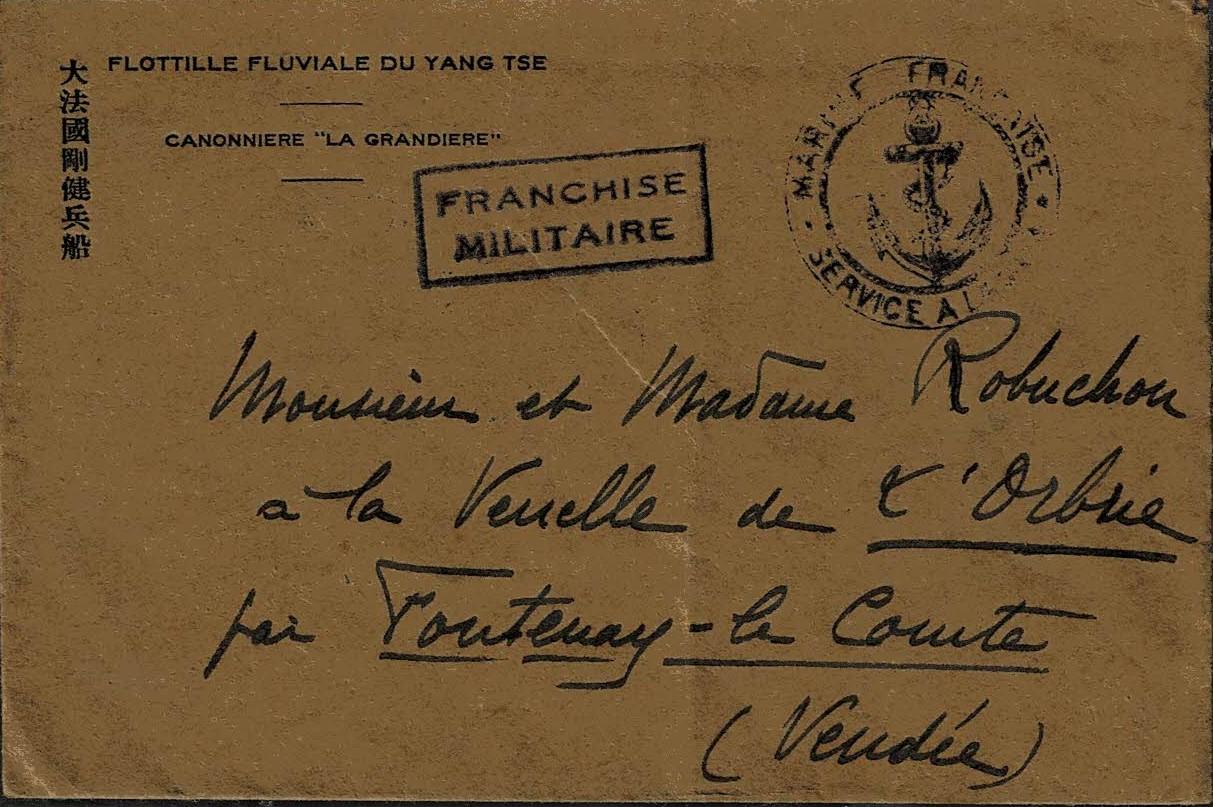 大法國剛健兵船
FLOTTILLE FLUVIALE DU YANG TSE
CANONNIERE "LA GRANDIERE"
FRANCHISE
MILITAIRE
MARINE FRANÇAISE
SERVICE A LA
Monsieur et Madame Robuchon
à la Venelle de L'Orbrie
par Fontenay-le Comte
(Vendée)